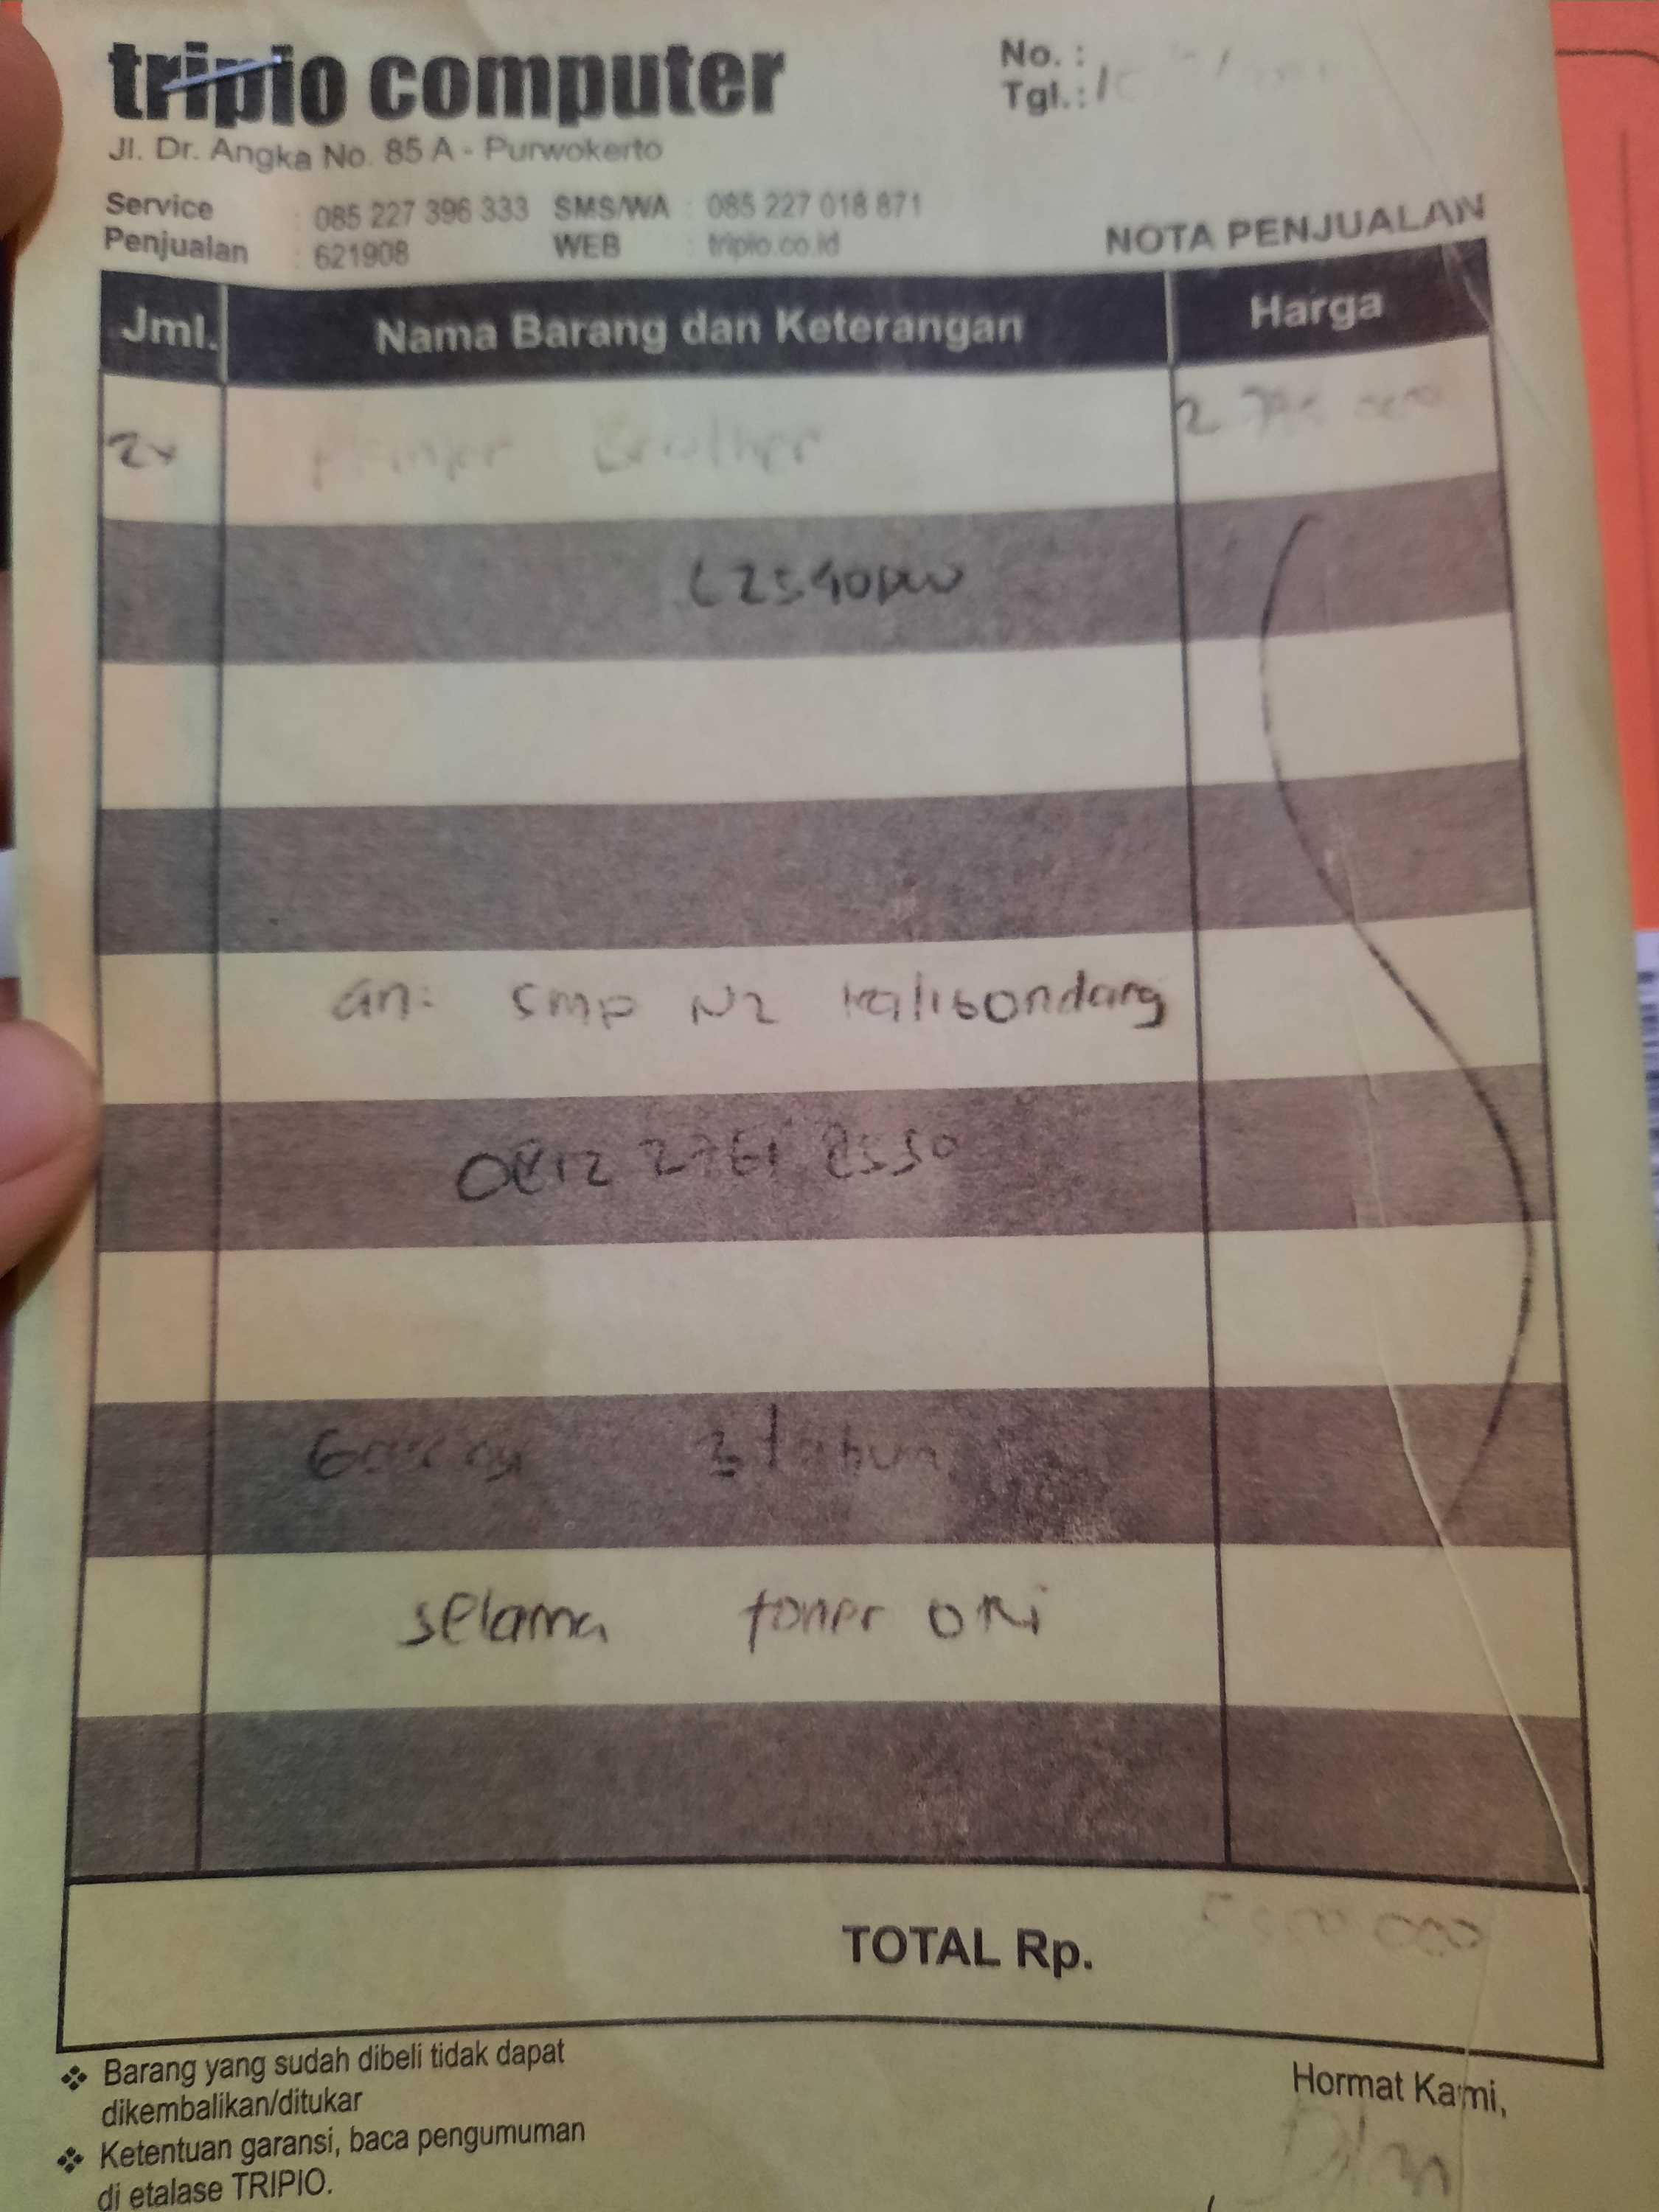 tripio computer
Jl. Dr. Angka No. 85 A - Purwokerto
No. :
Tgl.:
Service : 085 227 396 333 SMS/WA : 085 227 018 871
Penjualan : 621908 WEB : tripio.co.id
NOTA PENJUALAN
Jml. Nama Barang dan Keterangan Harga
2x Printer Brother
L2540DW
an: SMP N2 Kaligondang
0812 2761 8550
Garansi 3 tahun
selama toner ORi
TOTAL Rp.
❖ Barang yang sudah dibeli tidak dapat
dikembalikan/ditukar
❖ Ketentuan garansi, baca pengumuman
di etalase TRIPIO.
Hormat Kami,